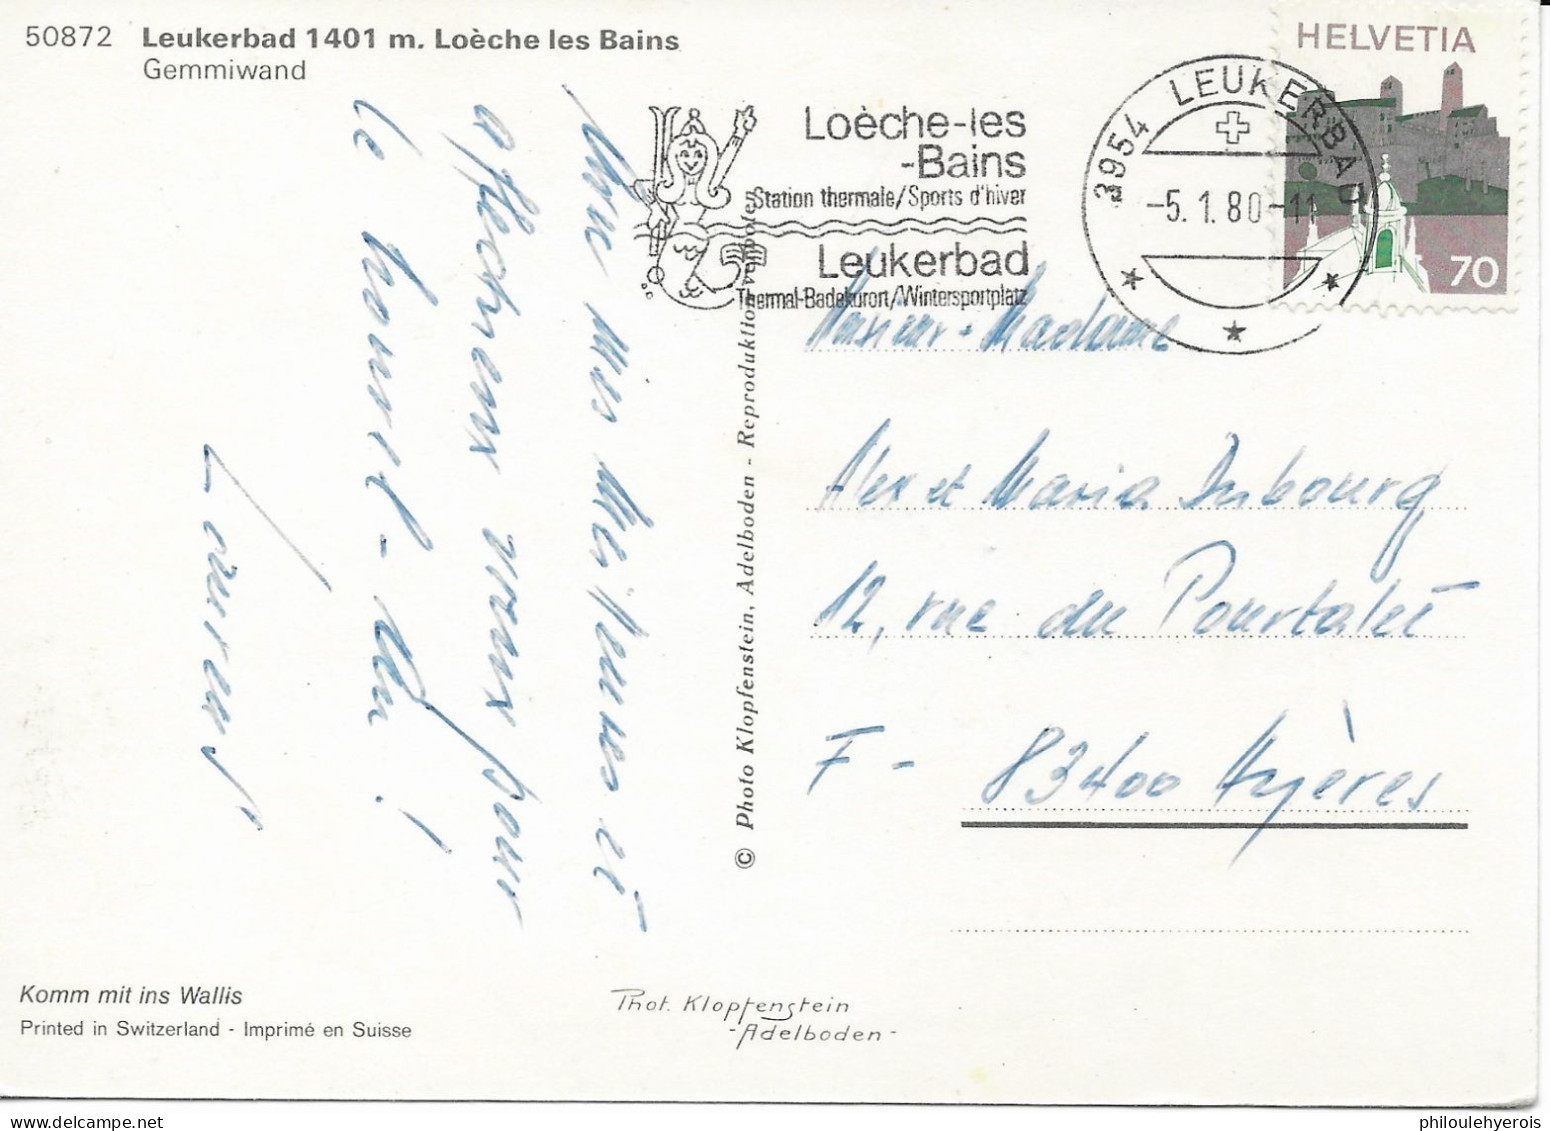 50872 Leukerbad 1401 m. Loèche les Bains
Gemmiwand
Loèche-les
-Bains
Station thermale/Sports d'hiver
Leukerbad
Thermal-Badekurort/Wintersportplatz
3954 LEUKERBAD
-5.1.80-11
HELVETIA
70
meilleurs et
affectueux vœux pour
le nouvel-An!
Laurent
© Photo Klopfenstein, Adelboden - Reproduktion verboten
Monsieur - Madame
Alex et Maria Dubourg
12, rue du Pourtalet
F - 83400 Hyères
Komm mit ins Wallis
Printed in Switzerland - Imprimé en Suisse
Phot. Klopfenstein
-Adelboden-
philoulehyerois